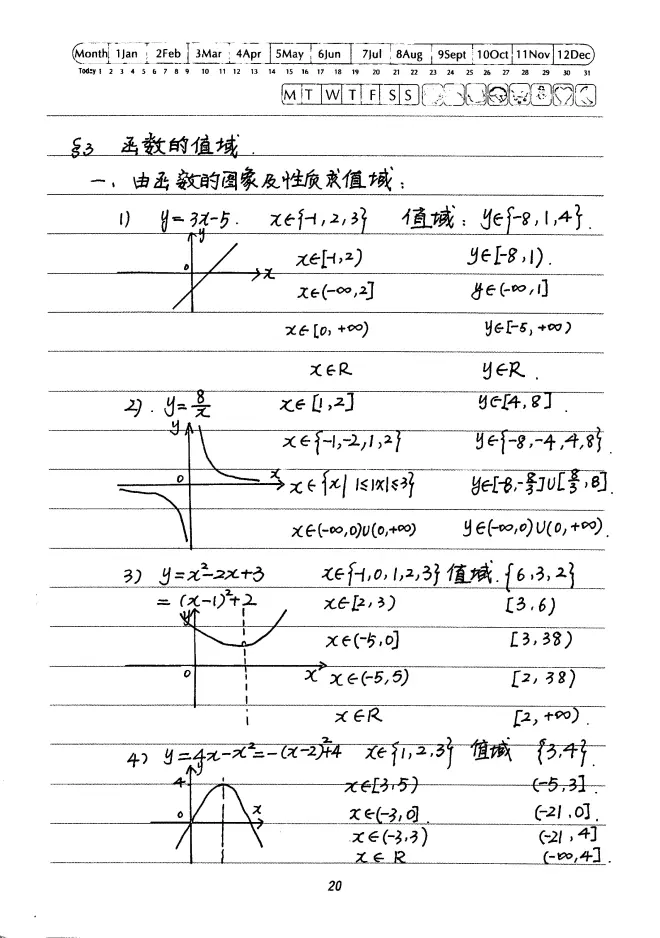 Month 1Jan 2Feb 3Mar 4Apr 5May 6Jun 7Jul 8Aug 9Sept 10Oct 11Nov 12Dec
Today 1 2 3 4 5 6 7 8 9 10 11 12 13 14 15 16 17 18 19 20 21 22 23 24 25 26 27 28 29 30 31
M T W T F S S
§3 函数的值域.
一、由函数的图象及性质求值域:
1) y=3x-5. x∈{-1,2,3} 值域: y∈{-8,1,4}.
y
0
x
x∈[-1,2) y∈[-8,1).
x∈(-∞,2] y∈(-∞,1]
x∈[0,+∞) y∈[-5,+∞)
x∈R y∈R.
2). y=8/x x∈[1,2] y∈[4,8].
y
0
x
x∈{-1,-2,1,2} y∈{-8,-4,4,8}.
x∈{x| 1≤|x|≤3} y∈[-8,-8/3]∪[8/3,8].
x∈(-∞,0)∪(0,+∞) y∈(-∞,0)∪(0,+∞).
3) y=x²-2x+3 x∈{-1,0,1,2,3} 值域.{6,3,2}
=(x-1)²+2 x∈[2,3) [3.6)
y
0
x
x∈(-5,0] [3,38)
x∈(-5,5) [2,38)
x∈R [2,+∞).
4) y=4x-x²=-(x-2)²+4 x∈{1,2,3} 值域 {3,4}.
y
4
0
x
x∈[3,5) (-5,3].
x∈(-3,0]. (-21,0].
x∈(-3,3) (-21,4]
x∈R (-∞,4].
20